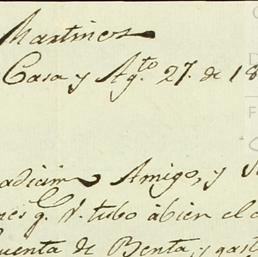 Martines
Casa y Ag.to 27. de 18
Amigo, y
q. V. tubo ábien el
uenta de Benta, y gast